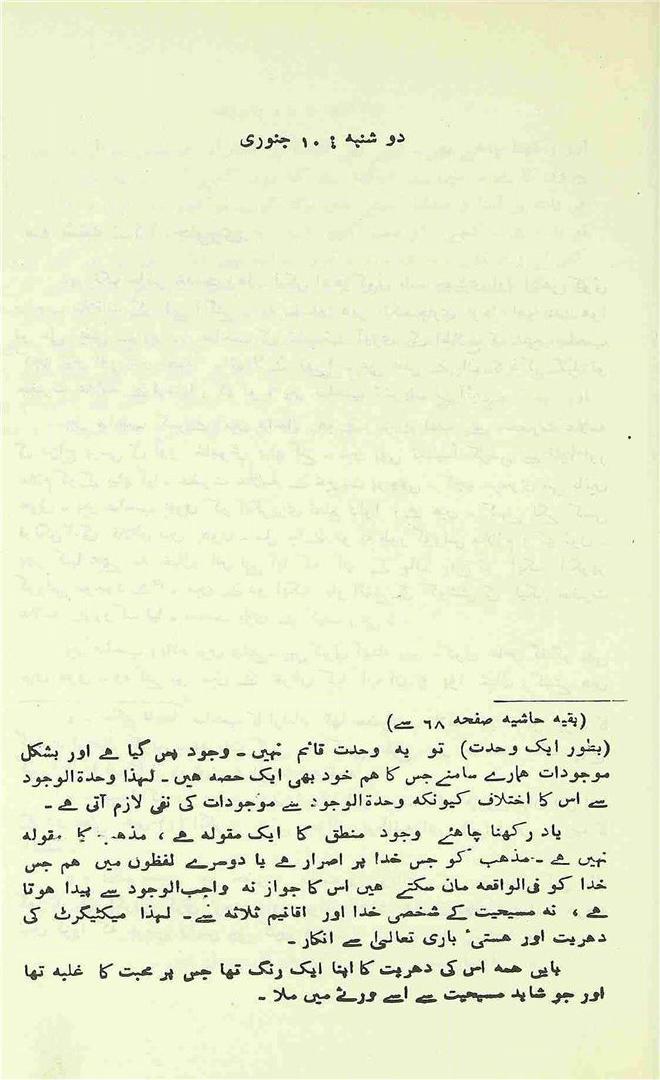 دو شنبہ : ۱۰ جنوری
(بقیہ حاشیہ صفحہ ۶۸ سے)
(بطور ایک وحدت) تو یہ وحدت قائم نہیں ۔ وجود پس گیا ہے اور بشکل
موجودات ہمارے سامنے جس کا ہم خود بھی ایک حصہ ہیں ۔ لہذا وحدۃالوجود
سے اس کا اختلاف کیونکہ وحدۃالوجود سے موجودات کی نفی لازم آتی ہے ۔
یاد رکھنا چاھئے وجود منطق کا ایک مقولہ ہے ، مذھب کا مقولہ
نہیں ہے ۔ مذھب کو جس خدا پر اصرار ہے یا دوسرے لفظوں میں ہم جس
خدا کو فی‌الواقعہ مان سکتے ہیں اس کا جواز نہ واجب‌الوجود سے پیدا ہوتا
ہے ، نہ مسیحیت کے شخصی خدا اور اقانیم ثلاثہ سے ۔ لہذا میکٹیگرٹ کی
دھریت اور ہستیٔ باری تعالیٰ سے انکار ۔
بایں ہمہ اس کی دھریت کا اپنا ایک رنگ تھا جس پر محبت کا غلبہ تھا
اور جو شاید مسیحیت سے اسے ورثے میں ملا ۔